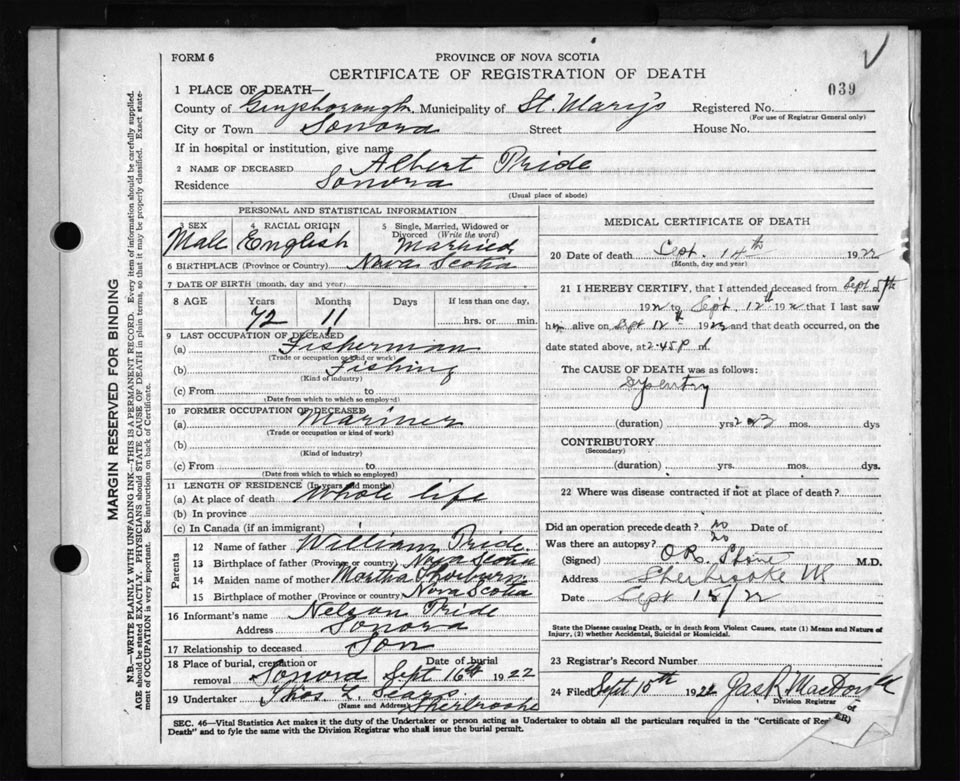 FORM 6
PROVINCE OF NOVA SCOTIA
CERTIFICATE OF REGISTRATION OF DEATH
039
1 PLACE OF DEATH—
County of Guysborough Municipality of St. Mary's Registered No.
(For use of Registrar General only)
City or Town Sonora Street House No.
If in hospital or institution, give name
2 NAME OF DECEASED Albert Pride
Residence Sonora
(Usual place of abode)
PERSONAL AND STATISTICAL INFORMATION
3 SEX Male
4 RACIAL ORIGIN English
5 Single, Married, Widowed or Divorced (Write the word) Married
6 BIRTHPLACE (Province or Country) Nova Scotia
7 DATE OF BIRTH (month, day, and year)
8 AGE Years Months Days If less than one day,
72 11 hrs. or min.
9 LAST OCCUPATION OF DECEASED
(a) Fisherman
(Trade or occupation or kind of work)
(b) Fishing
(Kind of industry)
(c) From to
(Date from which to which so employed)
10 FORMER OCCUPATION OF DECEASED
(a) Mariner
(Trade or occupation or kind of work)
(b)
(Kind of industry)
(c) From to
(Date from which to which so employed)
11 LENGTH OF RESIDENCE (In years and months)
(a) At place of death Whole life
(b) In province
(c) In Canada (if an immigrant)
Parents
12 Name of father William Pride
13 Birthplace of father (Province or country) Nova Scotia
14 Maiden name of mother Martha
15 Birthplace of mother (Province or country) Nova Scotia
16 Informant's name Nelson Pride
Address Sonora
17 Relationship to deceased Son
18 Place of burial, cremation or removal Sonora Date of burial Sept 16th 1922
19 Undertaker Thos. L. Sears
(Name and Address) Sherbrooke
MEDICAL CERTIFICATE OF DEATH
20 Date of death Sept. 14th 1922
(Month, day and year)
21 I HEREBY CERTIFY, that I attended deceased from Sept
192 to Sept. 12th 192 that I last saw
him alive on Sept 12th 1922 and that death occurred, on the
date stated above, at 2.45 P
The CAUSE OF DEATH was as follows:
Dysentry
(duration) yrs. mos. dys
CONTRIBUTORY
(Secondary)
(duration) yrs. mos. dys.
22 Where was disease contracted if not at place of death?
Did an operation precede death? no Date of
Was there an autopsy? no
(Signed) M.D.
Address Sherbrooke NS
Date Sept 15/22
State the Disease causing Death, or in death from Violent Causes, state (1) Means and Nature of
Injury, (2) whether Accidental, Suicidal or Homicidal.
23 Registrar's Record Number
24 Filed Sept 15th 1922
Division Registrar
SEC. 46—Vital Statistics Act makes it the duty of the Undertaker or person acting as Undertaker to obtain all the particulars required in the "Certificate of
Death" and to fyle the same with the Division Registrar who shall issue the burial permit.
MARGIN RESERVED FOR BINDING
N.B.—WRITE PLAINLY WITH UNFADING INK—THIS IS A PERMANENT RECORD. Every item of information should be carefully supplied.
AGE should be stated EXACTLY. PHYSICIANS should STATE CAUSE OF DEATH in plain terms, so that it may be properly classified. Exact statement of OCCUPATION is very important. See instructions on back of Certificate.